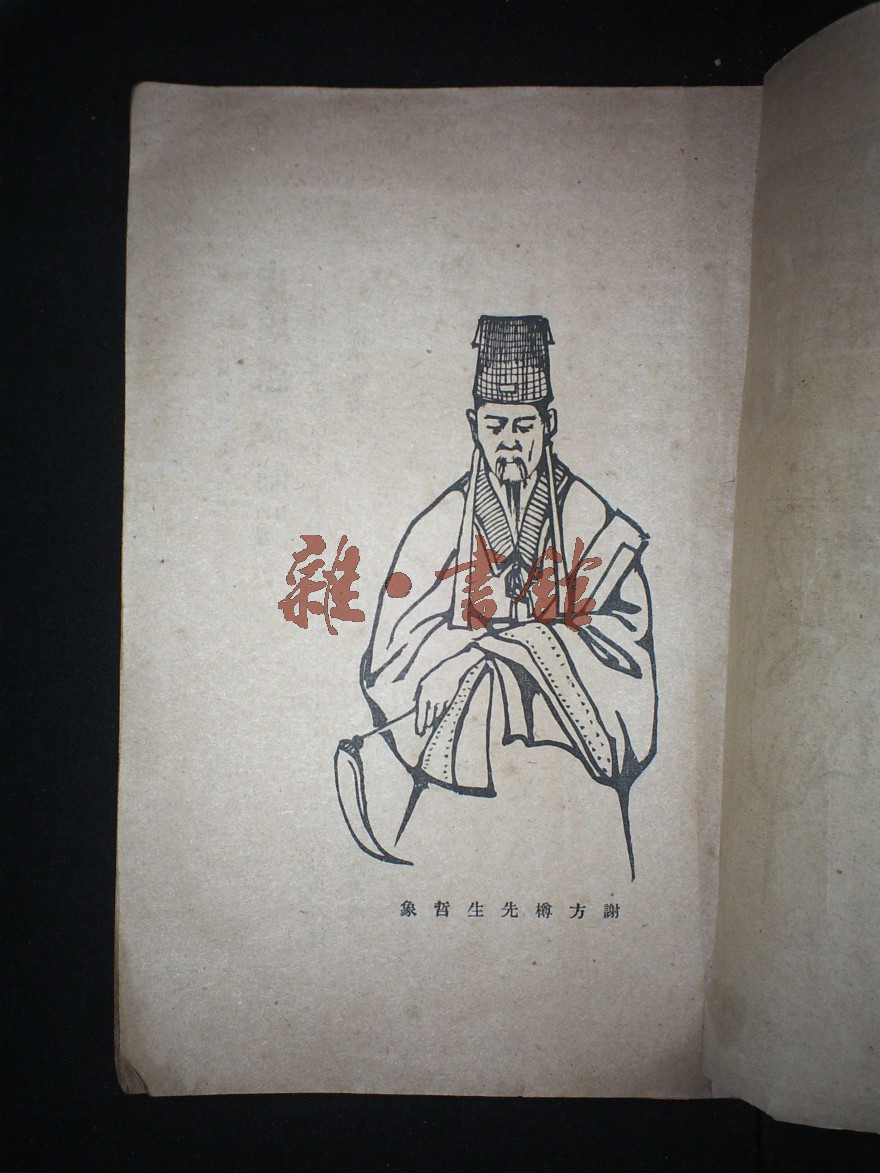 雜·書館
謝方樽先生哲象